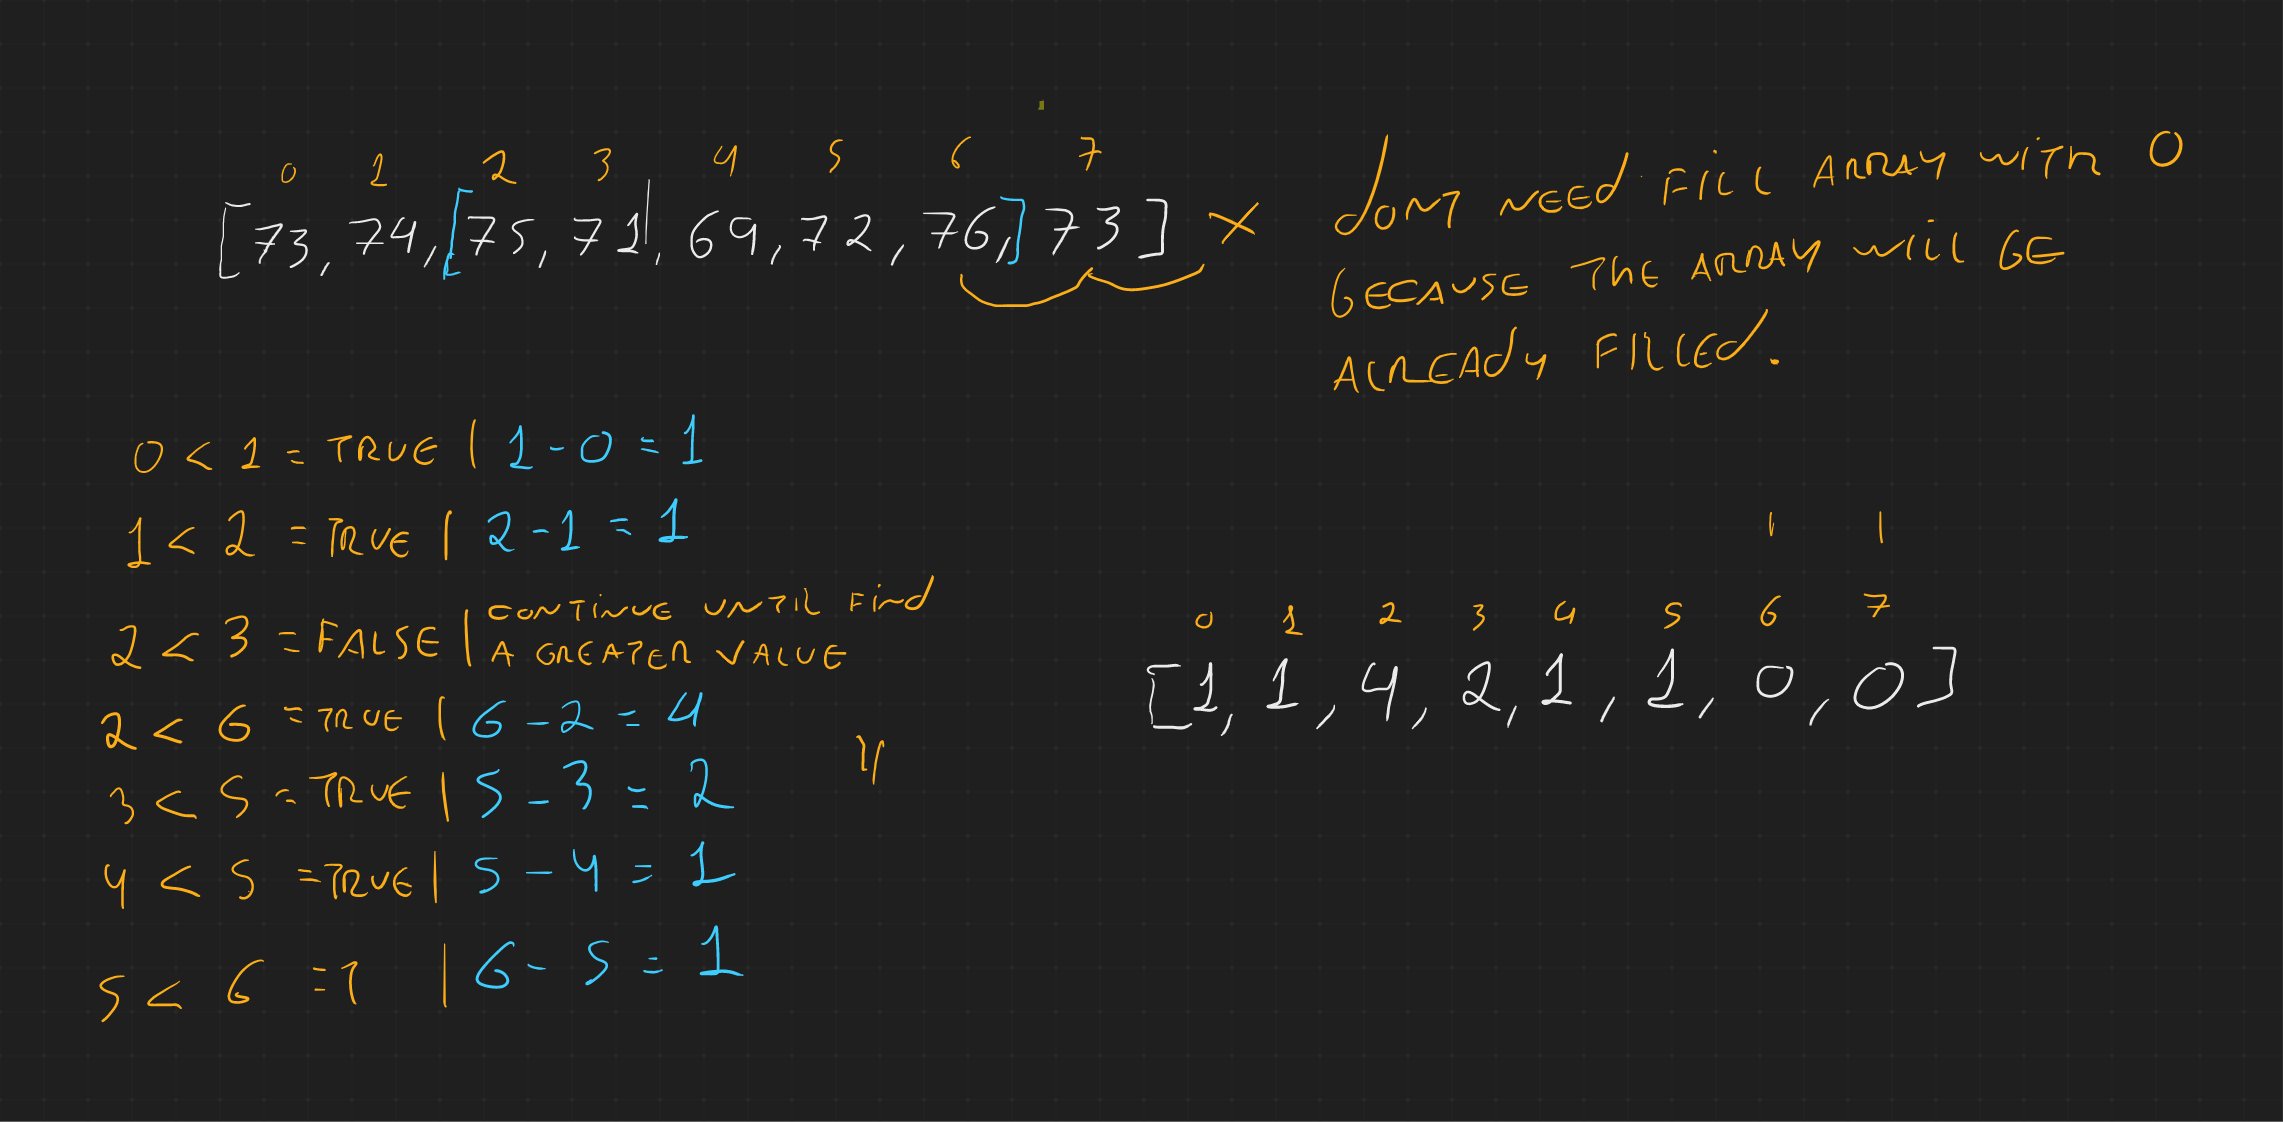 0 1 2 3 4 5 6 7
[73, 74, [75, 71|, 69, 72, 76,] 73] X
DONT NEED FILL ARRAY WITH 0
BECAUSE THE ARRAY WILL BE
ALREADY FILLED.
0 < 1 = TRUE | 1 - 0 = 1
1 < 2 = TRUE | 2 - 1 = 1
2 < 3 = FALSE | CONTINUE UNTIL FIND
A GREATER VALUE
2 < 6 = TRUE | 6 - 2 = 4
3 < 5 = TRUE | 5 - 3 = 2
4 < 5 = TRUE | 5 - 4 = 1
5 < 6 = | 6 - 5 = 1
0 1 2 3 4 5 6 7
[1, 1, 4, 2, 1, 1, 0, 0]